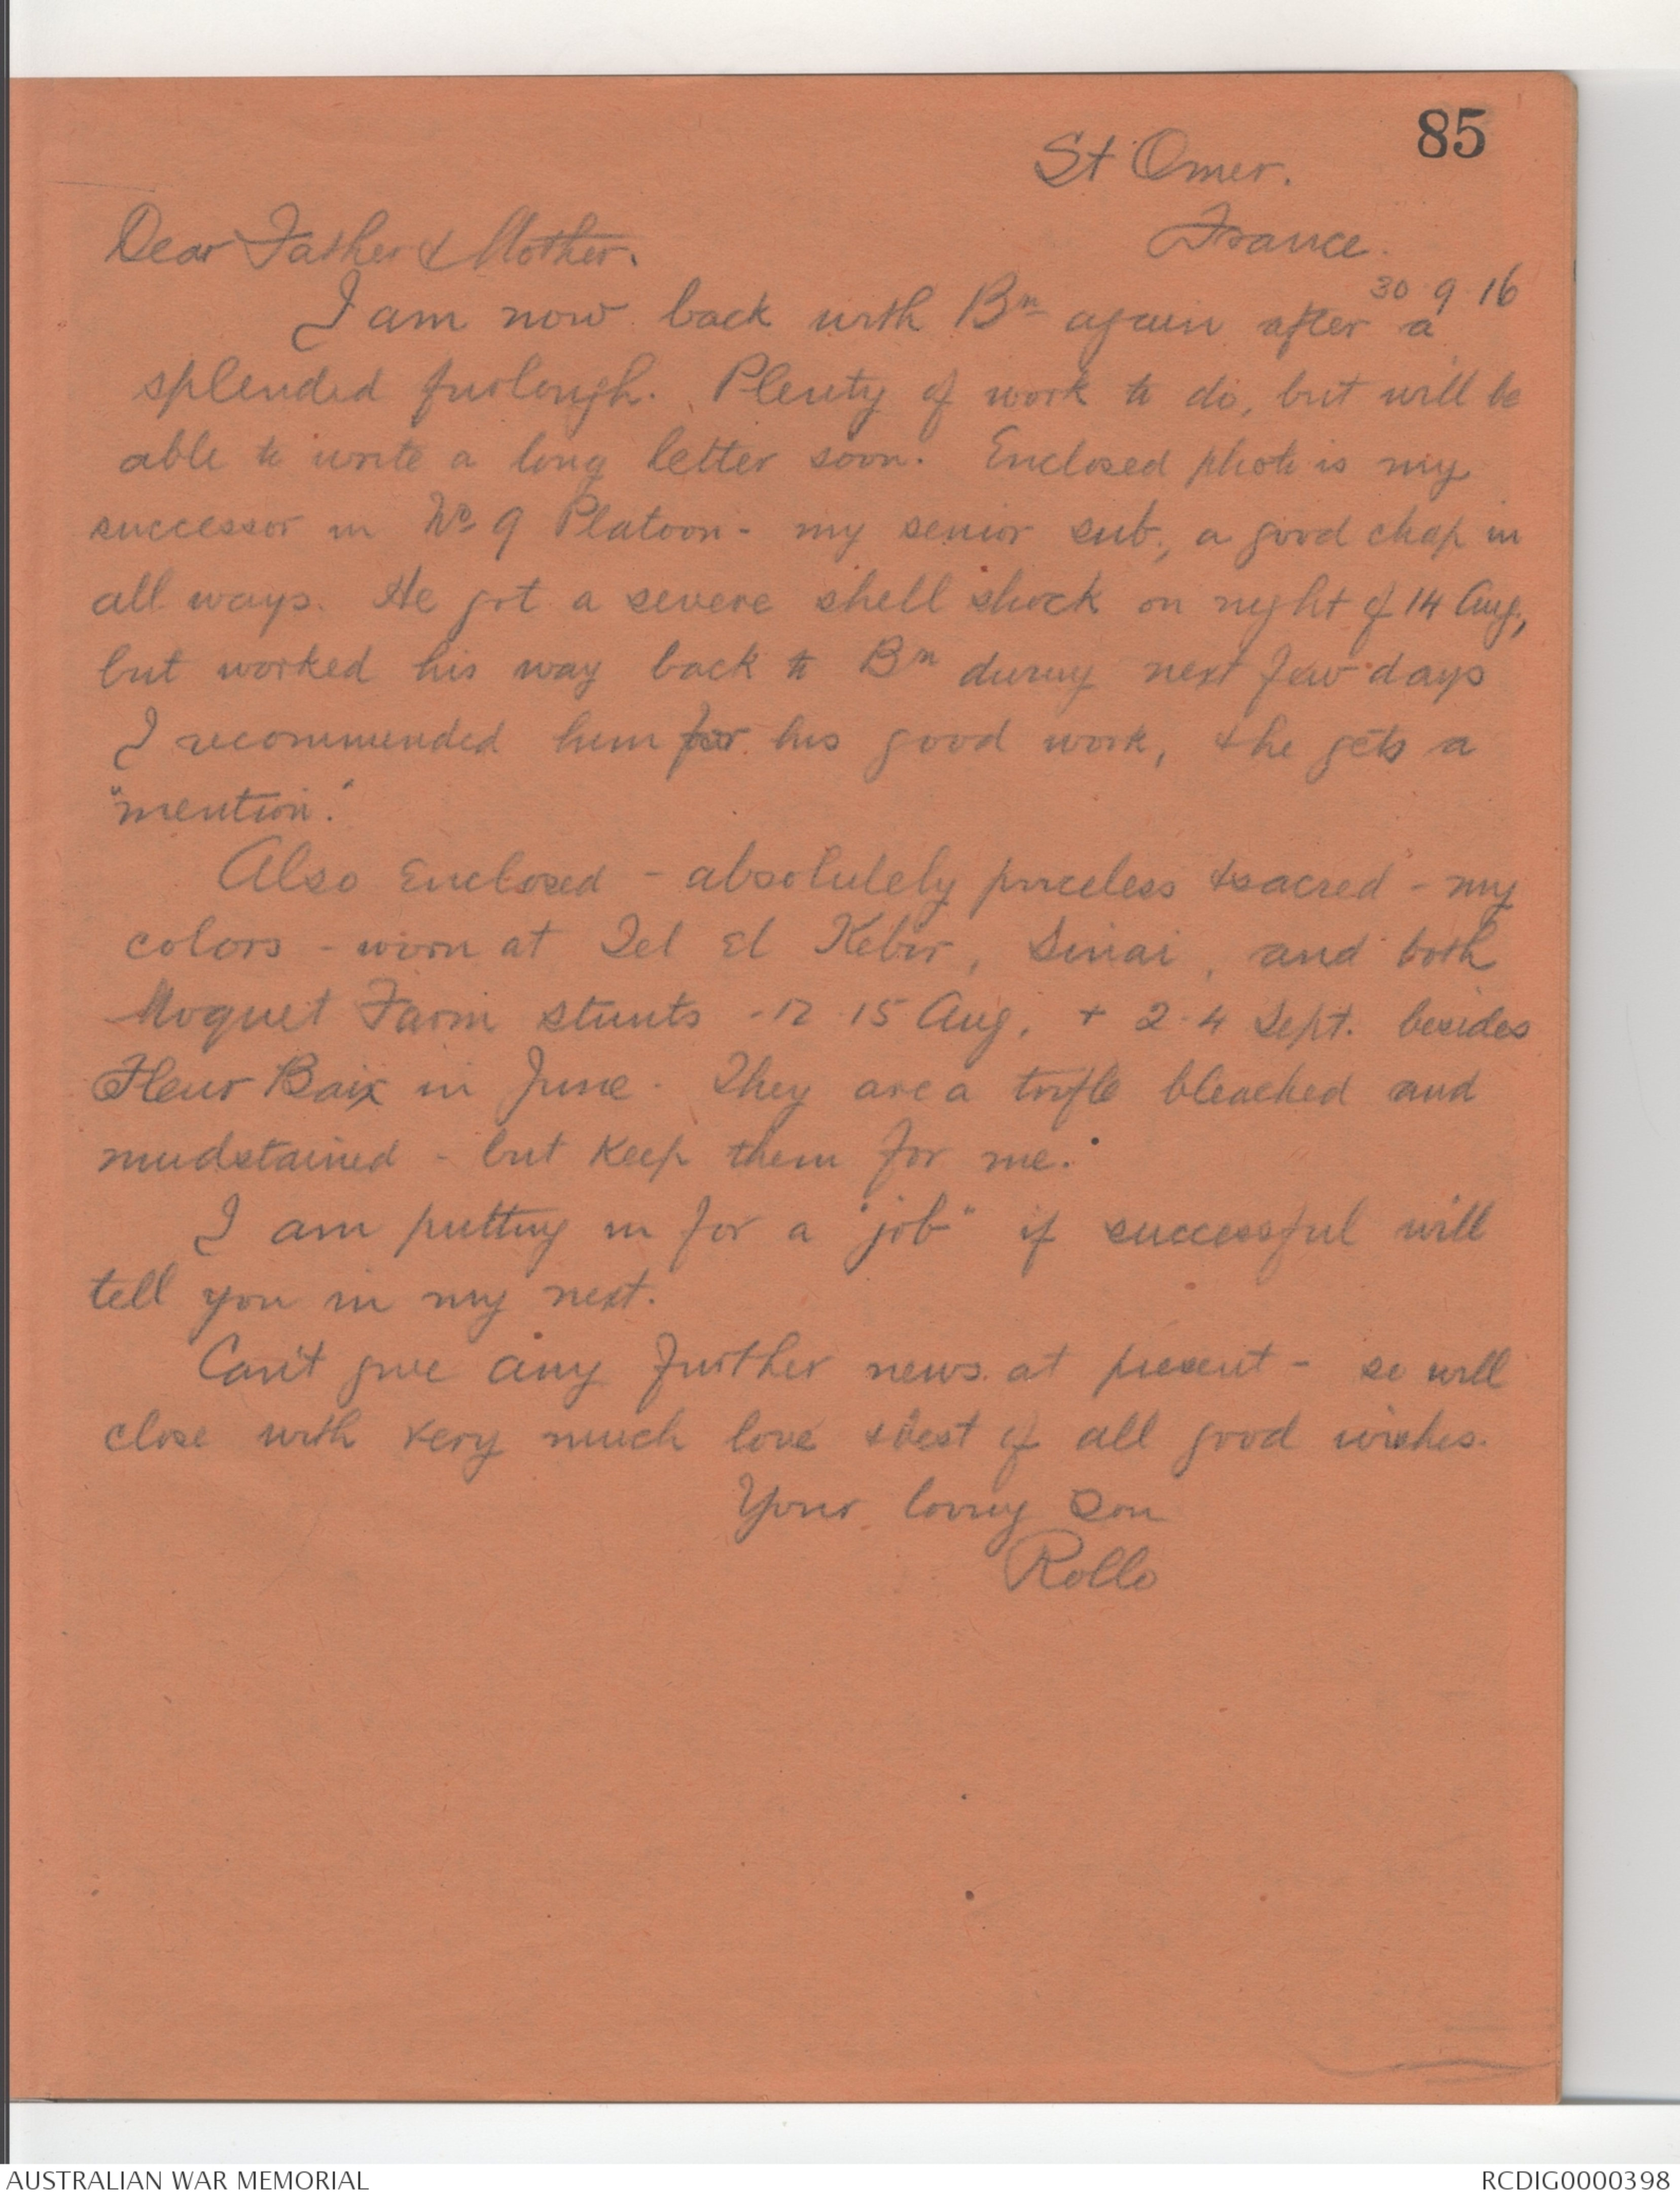 85
St Omer.
France.
30 9 16
Dear Father & Mother.
I am now back with Bn again after a
splendid furlough. Plenty of work to do, but will be
able to write a long letter soon. Enclosed photo is my
successor in No 9 Platoon - my senior sub, a good chap in
all ways. He got a severe shell shock on night of 14 Aug,
but worked his way back to Bn during next few days
I recommended him for his good work, & he gets a
"mention."
Also enclosed - absolutely priceless & sacred - my
colors - worn at Tel El Kebir, Sinai, and both
Moquet Farm stunts - 12 15 Aug, + 2-4 Sept. besides
Fleur Baix in June. They are a trifle bleached and
mudstained - but keep them for me.
I am putting in for a "job" if successful will
tell you in my next.
Can't give any further news at present - so will
close with very much love & best of all good wishes.
Your loving Son
Rollo
AUSTRALIAN WAR MEMORIAL
RCDIG0000398